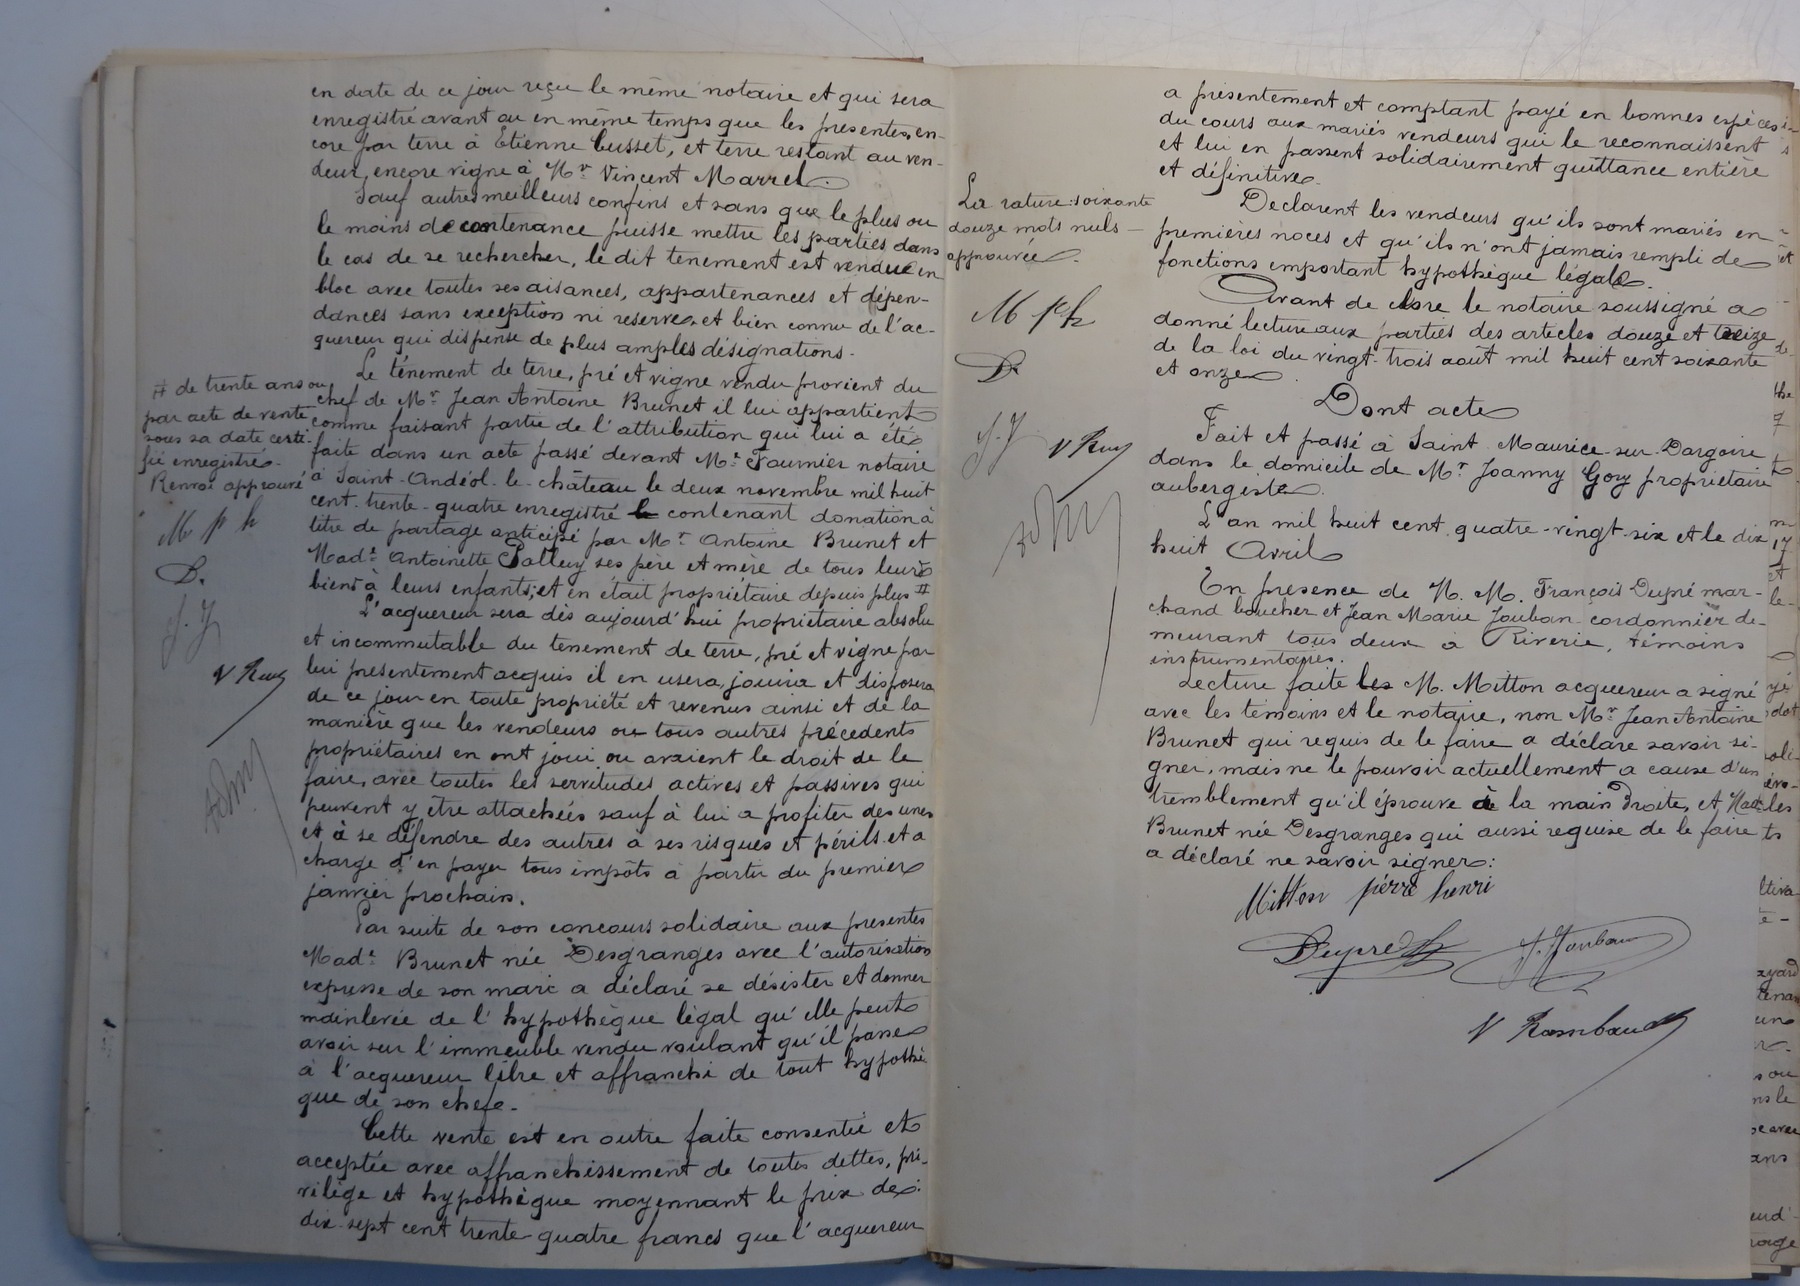 en date de ce jour reçu le même notaire et qui sera
enregistré avant ou en même temps que les presentes, en-
core par terre à Etienne Cusset, et terre restant au ven-
deur, encore vigne à Mr Vincent Marrel.
Sauf autres meilleurs confins et sans que le plus ou
le moins de contenance puisse mettre les parties dans
le cas de se rechercher, le dit tenement est vendu en
bloc avec toutes ses aisances, appartenances et dépen-
dances sans exception ni reserve et bien connu de l'ac-
quereur qui dispense de plus amples désignations.
Le ténement de terre, pré et vigne vendu provient du
chef de Mr Jean Antoine Brunet il lui appartient
comme faisant partie de l'attribution qui lui a été
faite dans un acte passé devant Me Fournier notaire
à Saint-Andéol-le-château le deux novembre mil huit
cent-trente-quatre enregistré le contenant donation à
titre de partage anticipé par Mr Antoine Brunet et
Made Antoinette Palluy ses père et mère de tous leurs
biens à leurs enfants; et en était propriétaire depuis plus #
L'acquereur sera dès aujourd'hui propriétaire absolu
et incommutable du tenement de terre, pré et vigne par
lui presentement acquis il en usera, jouira et disposera
de ce jour en toute propriété et revenus ainsi et de la
manière que les vendeurs ou tous autres précedents
propriétaires en ont joui ou avaient le droit de le
faire, avec toutes les servitudes actives et passives qui
peuvent y être attachées sauf à lui a profiter des unes
et à se défendre des autres a ses risques et périls et a
charge d'en payer tous impôts à partir du premier
janvier prochain.
Par suite de son concours solidaire aux presentes
Made Brunet née Desgranges avec l'autorisation
expresse de son mari a déclaré se désister et donner
mainlevée de l'hypothèque légal qu'elle peut
avoir sur l'immeuble vendu voulant qu'il passe
à l'acquereur libre et affranchi de tout hypothè
que de son chef.
Cette vente est en outre faite consentie et
acceptée avec affranchissement de toutes dettes, pri-
vilège et hypothèque moyennant le prix de:
dix-sept cent trente-quatre francs que l'acquereur
# de trente ans ou
par acte de vente
sous sa date certi-
fié enregistré.
Renvoi approuvé
M p h
D.
J. J
V Ram
a présentement et comptant payé en bonnes espèces
du cours aux mariés vendeurs qui le reconnaissent
et lui en passent solidairement quittance entière
et définitive.
Declarent les vendeurs qu'ils sont mariés en
premières noces et qu'ils n'ont jamais rempli de
fonctions emportant hypothèque légale.
Avant de clore le notaire soussigné a
donné lecture aux parties des articles douze et treize
de la loi du vingt-trois aout mil huit cent soixante
et onze.
Dont acte
Fait et passé à Saint-Maurice-sur-Dargoire
dans le domicile de Mr Joanny Goy propriétaire
aubergiste.
L'an mil huit cent quatre-vingt-six et le dix
huit Avril
En presence de M. M. François Dupré mar-
chand boucher et Jean Marie Jouban cordonnier de-
meurant tous deux à Riverie, témoins
instrumentaires.
Lecture faite les M. Mitton acquereur a signé
avec les temoins et le notaire, non Mr Jean Antoine
Brunet qui requis de le faire a déclare savoir si-
gner, mais ne le pouvoir actuellement a cause d'un
tremblement qu'il éprouve à la main droite, et Made
Brunet née Desgranges qui aussi requise de le faire
a déclaré ne savoir signer:
Mitton pierre henri
Dupré
J. Jouban
V Rambaud
La rature soixante
douze mots nuls
approuvée.
M p h
D.
J. J
V Ram